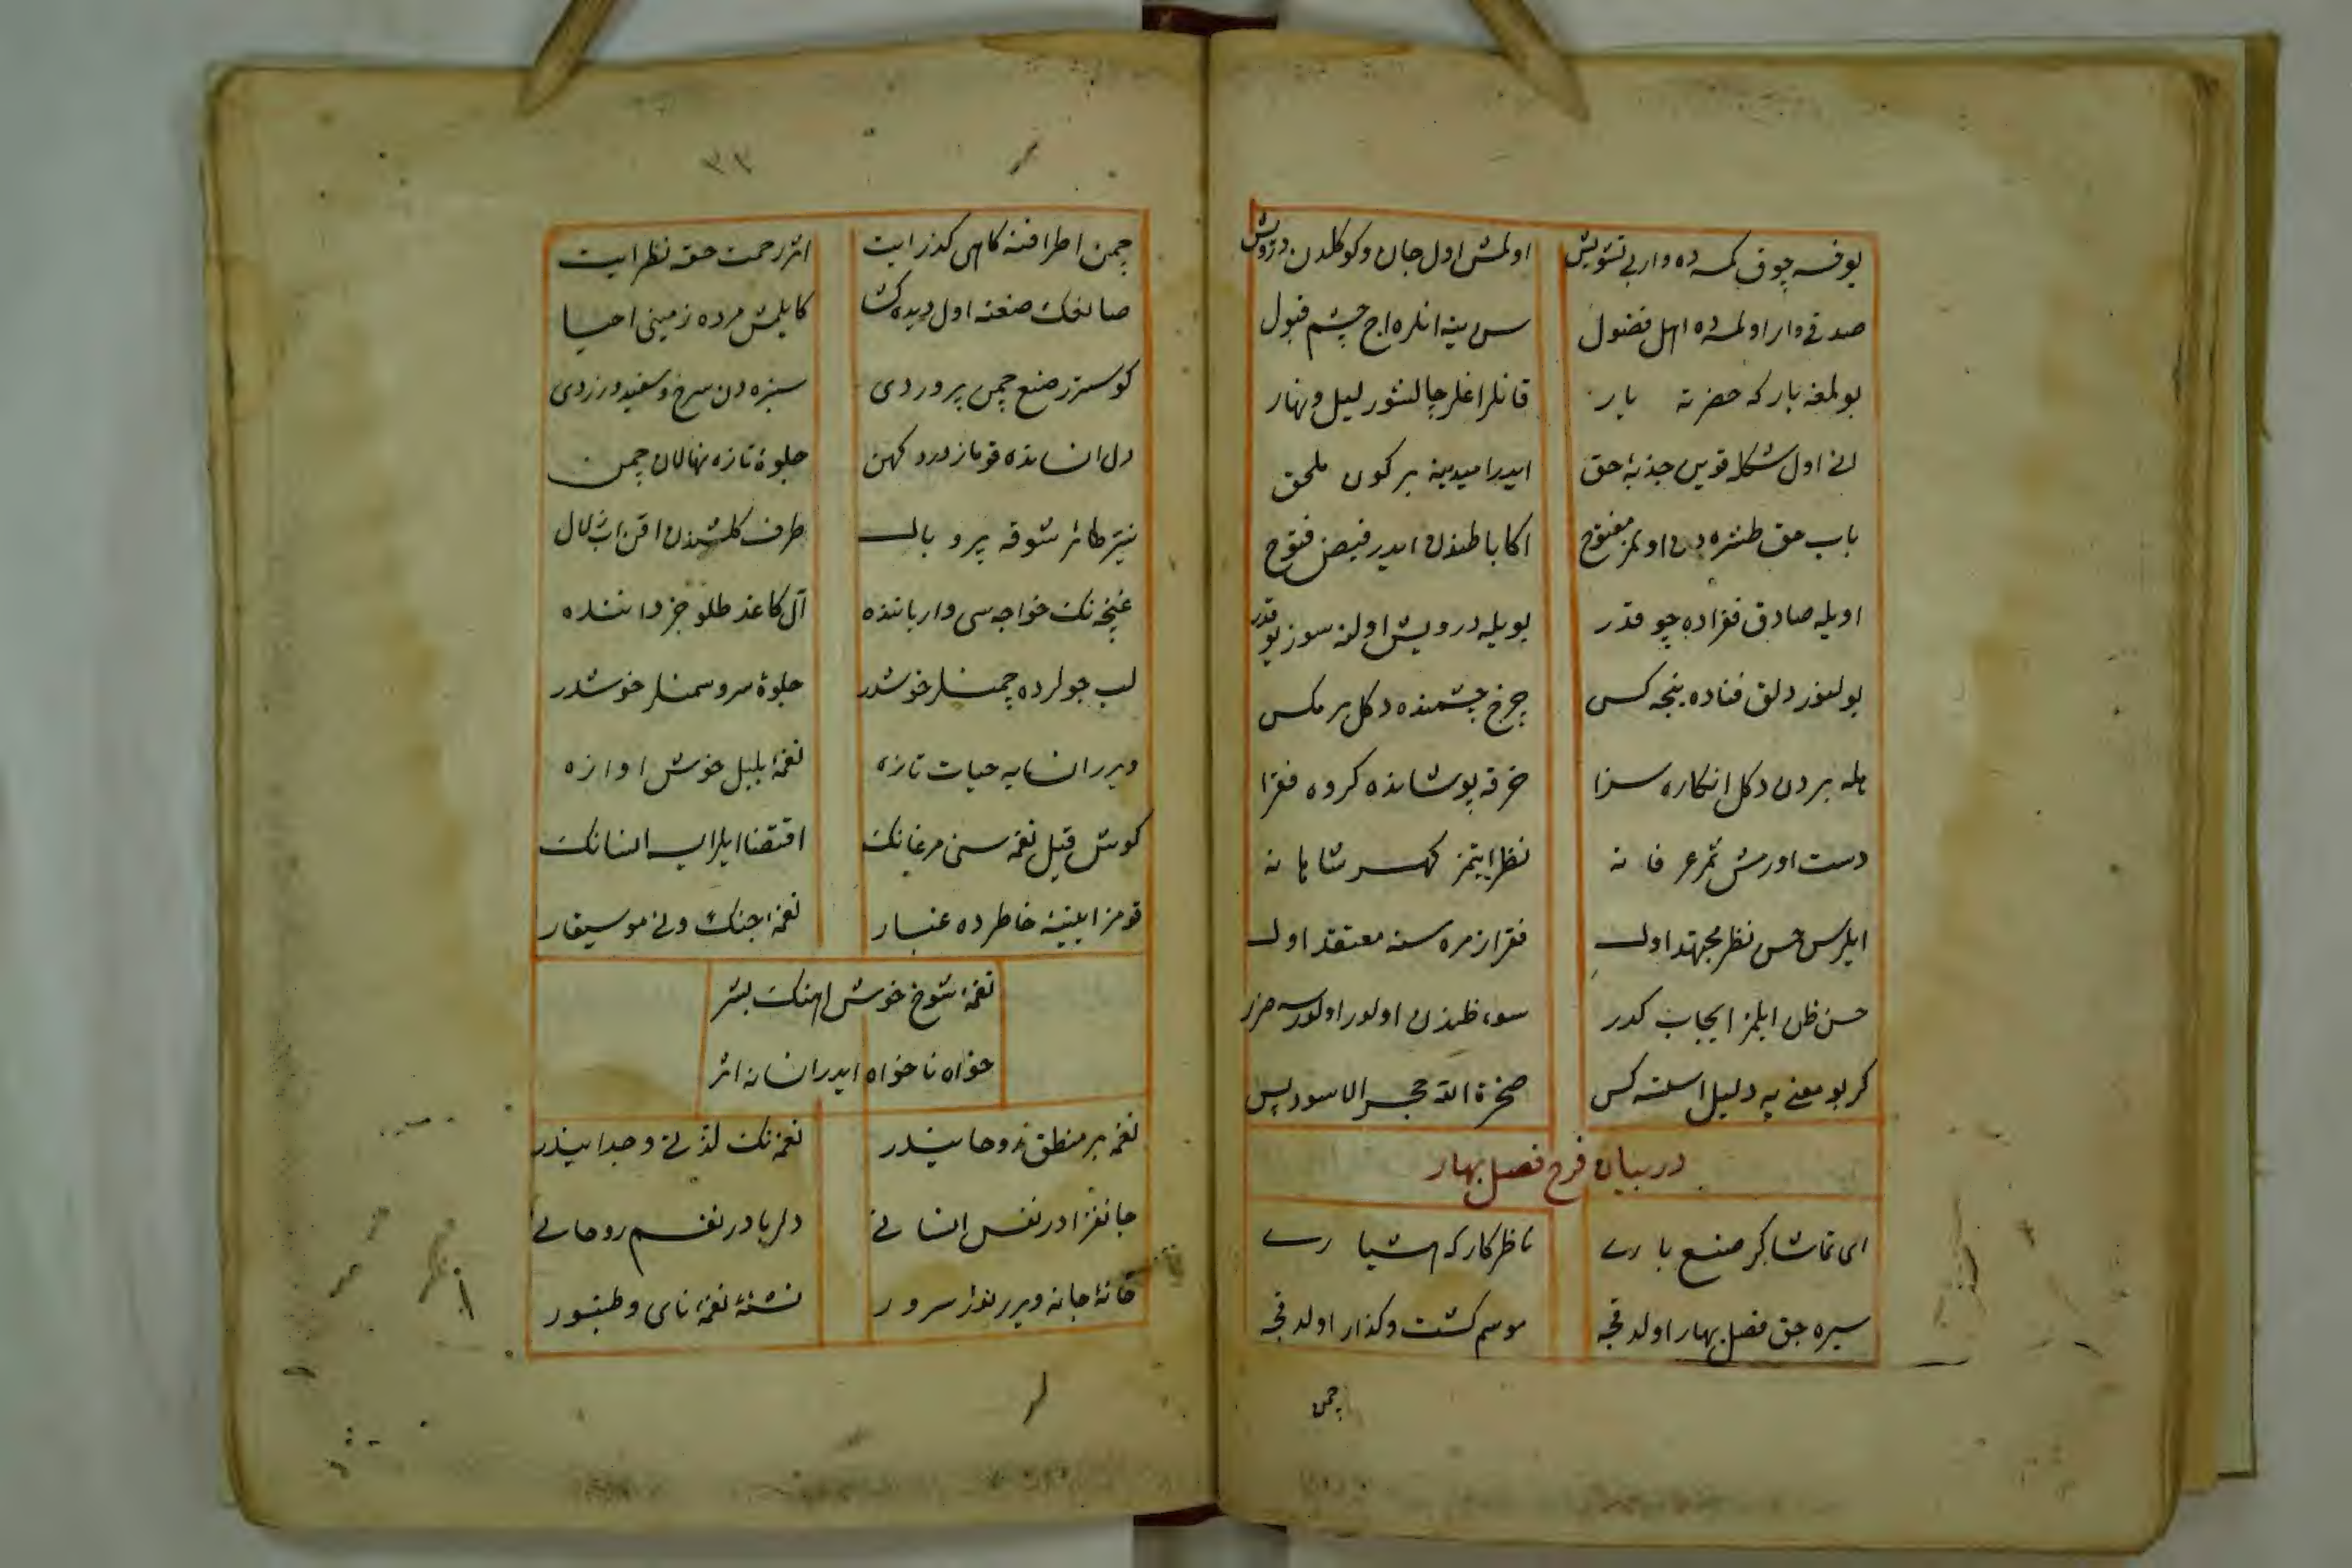 یوقسه چوق کمسه ده وار بی تشویش اولمش اول جان و کوکلدن درویش
صدقی وار اولمسه ده اهل فضول سن ینه انلره اچ چشم قبول
بولمغه یار که حضرته یار قانلر اغلر چالشور لیل و نهار
انی اول شکله قویمس جذبۀ حق ایدر امیدینه بر کون ملحق
باب حق طشره دن اولمز مفتوح اکا باطندن ایدر فیض فتوح
اویله صادق فقراده چوقدر بویله درویش اولنه سوز یوقدر
بولنور دلق فناده نیجه کس چرخ چشمنده دکل بر مکس
هله بردن دکل انکاره سزا خرقه پوشانده کروه فقرا
دست اورمش ثمر عرفانه نظر ایتمز کهر شاهانه
ایلرسن حسن نظر مجتهد اول فقرا زمره سنه معتقد اول
حسن ظن ایلمز ایجاب کدر سوء ظندن اولور اولورسه ضرر
کر بو معنی یه دلیل استنه کس صخرة الله حجر الاسود بس
در بیان فرح فصل بهار
ای تماشاکر صنع باری ناظر کارکه اشیاری
سیره چق فصل بهار اولدقجه موسم کشت و کذار اولدقجه
چمن
٣٣
چمن اطرافنه کاهی کذر ایت اثر رحمت حقه نظر ایت
صانعک صنعنه اول دیده کشا کایلمش مرده زمینی احیا
کوسترر صنع چمن پروردی سبزه دن سرخ و سفید و زردی
دل انسانده قوماز درد کهن جلوۀ تازه نهالان چمن
نیتر طائر شوقه پر و بال طرف کلشندن اقن اب زلال
غنچه نک خواجه سی وار یاننده آل کاغذ طلو جزداننده
لب جولرده چمنلر خوشدر جلوۀ سرو سمنلر خوشدر
ویرر انسانه حیات تازه نغمۀ بلبل خوش اوازه
کوش قیل نغمه سنی مرغانک اقتضا ایلر ایسه انسانک
قومز ایینۀ خاطرده غبار نغمۀ چنک و نی موسیقار
نغمۀ شوخ خوش اهنک بشر
خواه ناخواه ایدر انسانه اثر
نغمه بر منطق روحانیدر نغمه نک لذتی وجدانیدر
جانفزادر نفس انسانی دلربادر نغم روحانی
خانۀ جانه ویرر نور سرور نشئۀ نغمۀ نای و طنبور